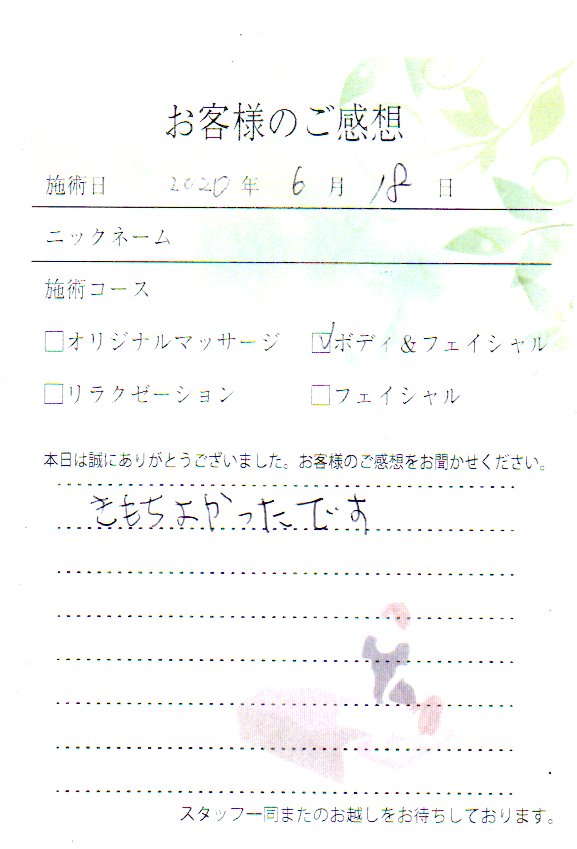 お客様のご感想
施術日 2020年 6月 18日
ニックネーム
施術コース
□オリジナルマッサージ ☑ボディ&フェイシャル
□リラクゼーション □フェイシャル
本日は誠にありがとうございました。お客様のご感想をお聞かせください。
きもちよかったです
スタッフ一同またのお越しをお待ちしております。